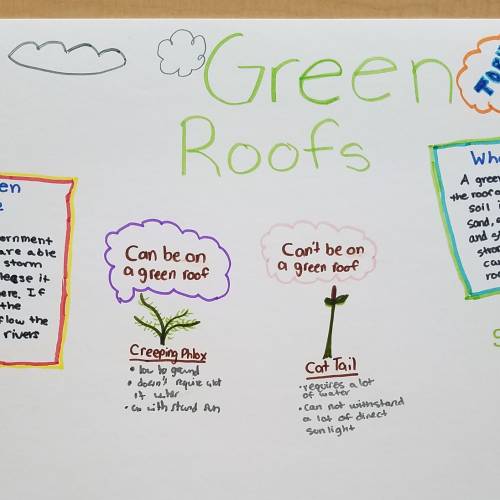 Green
Roofs
en
ernment
are able
storm
ere. If
the
flow the
rivers
Can be on
a green roof
Creeping Phlox
• low to ground
• doesn't require alot
of water
• can with stand sun
Can't be on
a green roof
Cat Tail
• requires a lot
of water
• can not withstand
a lot of direct
sunlight
Wh
A green
the roof o
soil i
sand,
and s